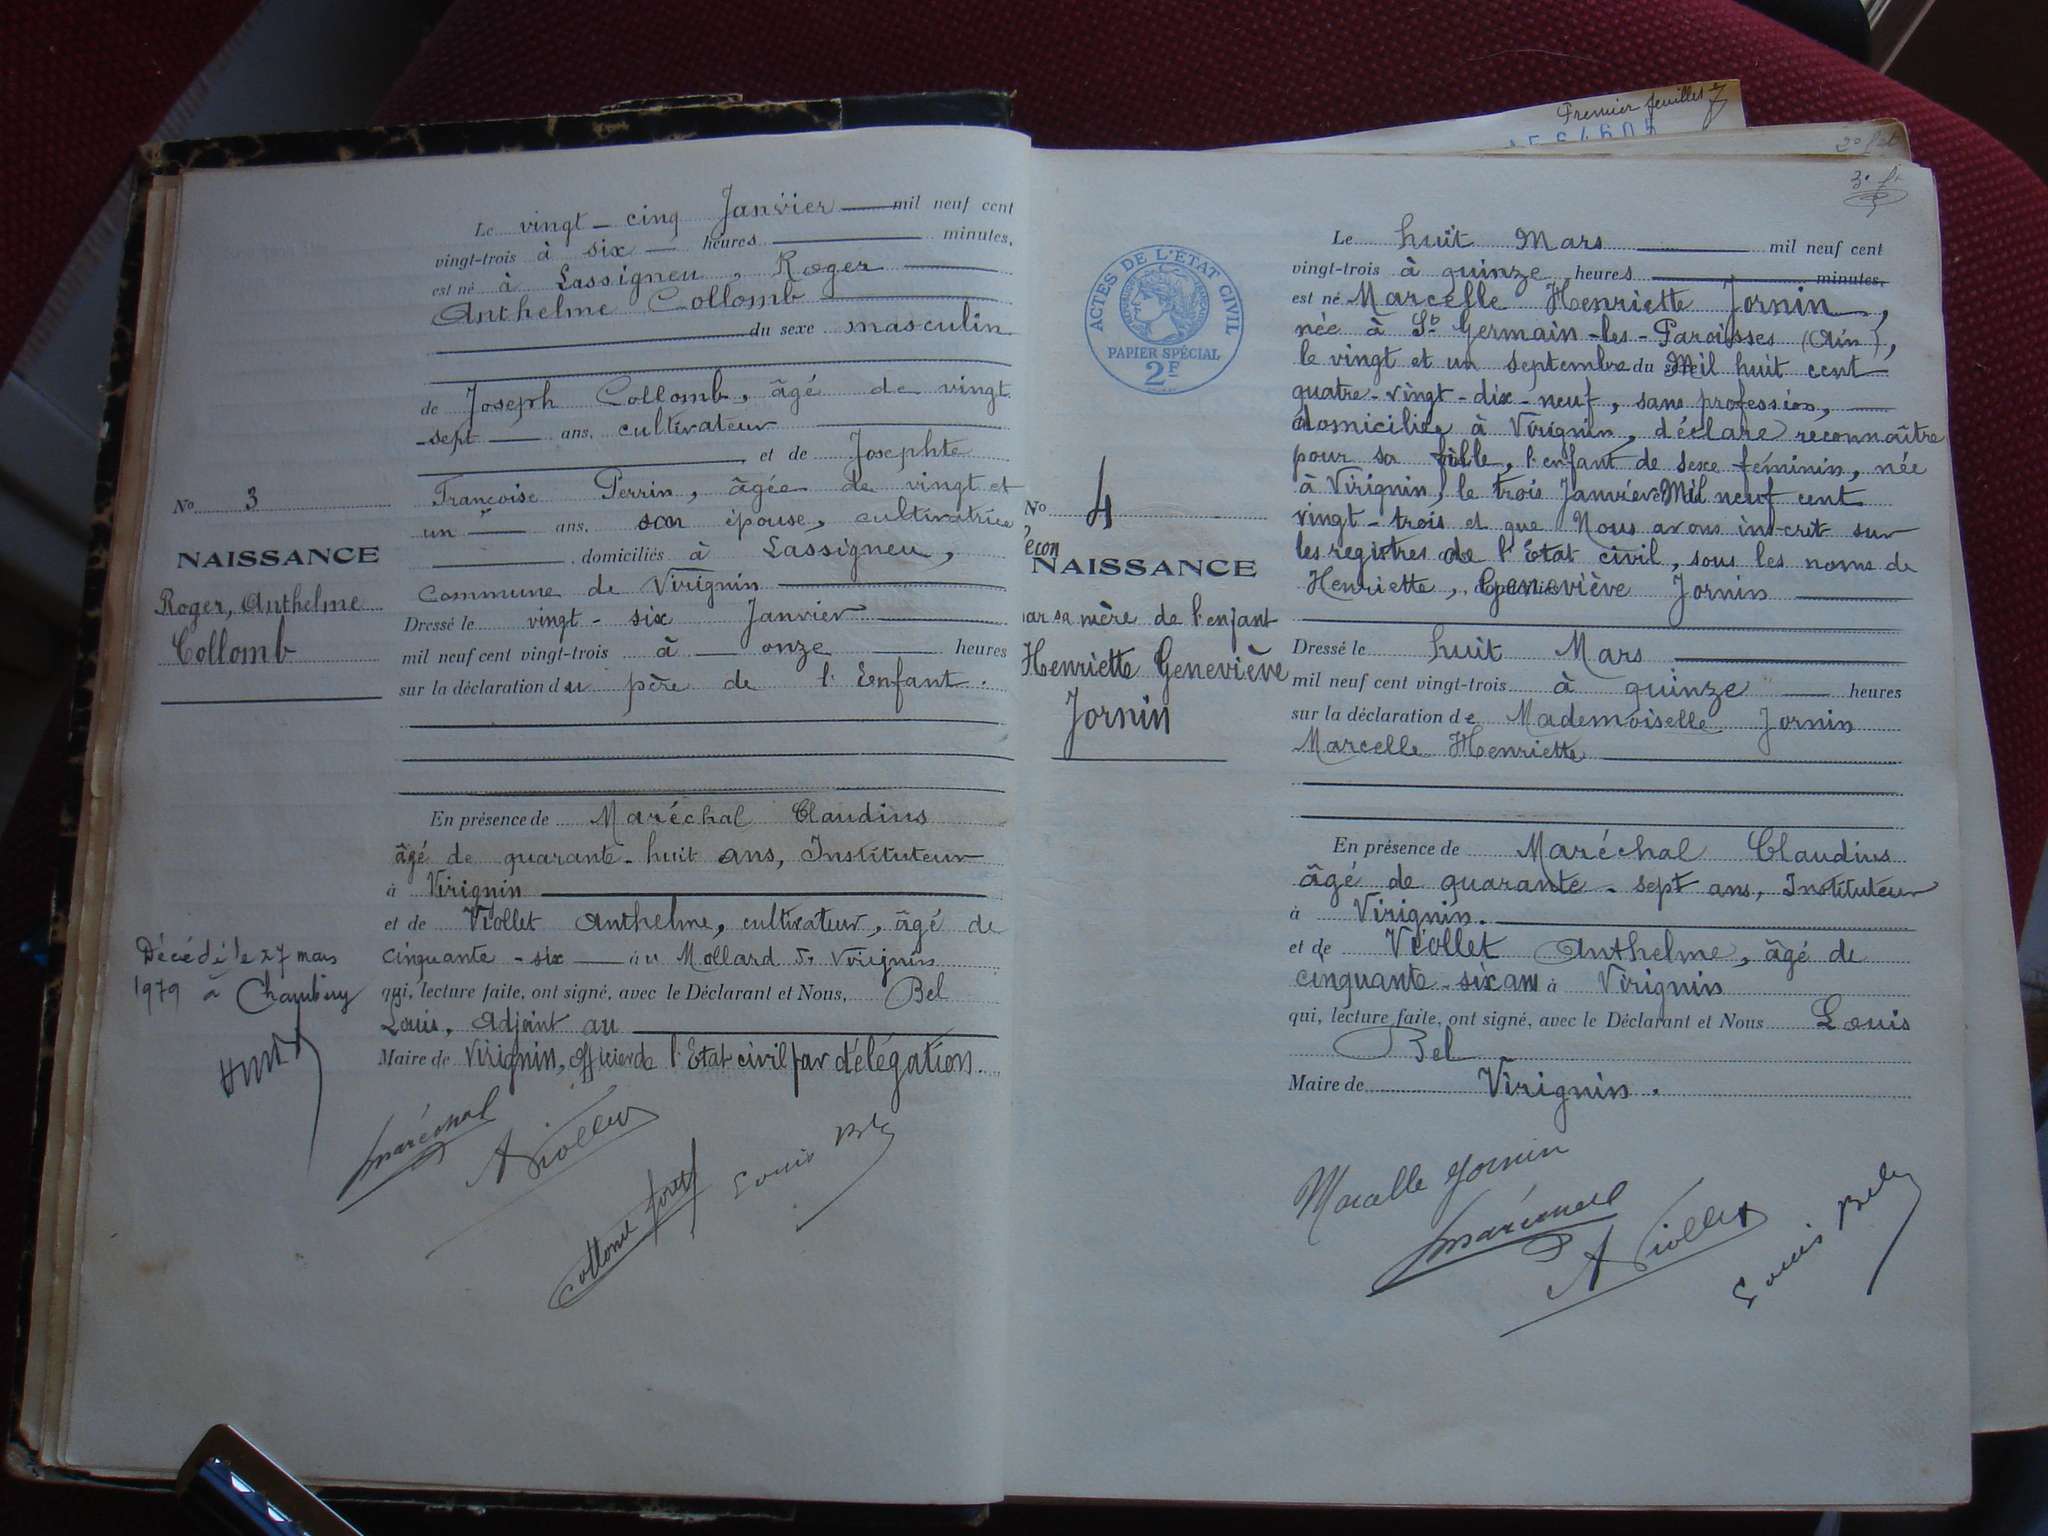 Le vingt-cinq Janvier mil neuf cent
vingt-trois à six heures minutes,
est né à Lassigneu, Roger
Anthelme Collomb
du sexe masculin
de Joseph Collomb, âgé de vingt
-sept ans, cultivateur
et de Josephte
Françoise Perrin, âgée de vingt et
un ans, son épouse, cultivatrice
domiciliés à Lassigneu,
commune de Virignin
Dressé le vingt-six Janvier
mil neuf cent vingt-trois à onze heures
sur la déclaration du père de l'Enfant.
En présence de Maréchal Claudius
âgé de quarante-huit ans, Instituteur
à Virignin
et de Viollet Anthelme, cultivateur, âgé de
cinquante-six au Mollard de Virignin
qui, lecture faite, ont signé, avec le Déclarant et Nous, Bel
Louis, Adjoint au
Maire de Virignin, officier de l'Etat civil par délégation.
No 3
NAISSANCE
Roger, Anthelme
Collomb
Décédé le 27 mars
1979 à Chambéry
Maréchal
A Viollet
Louis Bel
Premier feuillet
2e
3e
ACTES DE L'ETAT CIVIL
PAPIER SPÉCIAL
2F
No 4
Recon
NAISSANCE
par sa mère de l'enfant
Henriette Geneviève
Jornin
Le huit Mars mil neuf cent
vingt-trois à quinze heures minutes,
est né Marcelle Henriette Jornin,
née à St Germain-les-Paroisses (Ain),
le vingt et un septembre du sexe Mil huit cent
quatre-vingt-dix-neuf, sans profession,
domiciliée à Virignin, déclare reconnaître
pour sa fille, l'enfant de sexe féminin, née
à Virignin, le trois Janvier Mil neuf cent
vingt-trois et que Nous avons inscrit sur
les registres de l'Etat civil, sous les noms de
Henriette, Geneviève Jornin
Dressé le huit Mars
mil neuf cent vingt-trois à quinze heures
sur la déclaration de Mademoiselle Jornin
Marcelle Henriette
En présence de Maréchal Claudius
âgé de quarante-sept ans, Instituteur
à Virignin.
et de Viollet Anthelme, âgé de
cinquante-six ans à Virignin
qui, lecture faite, ont signé, avec le Déclarant et Nous Louis
Bel
Maire de Virignin.
Marcelle Jornin
Maréchal
A Viollet
Louis Bel